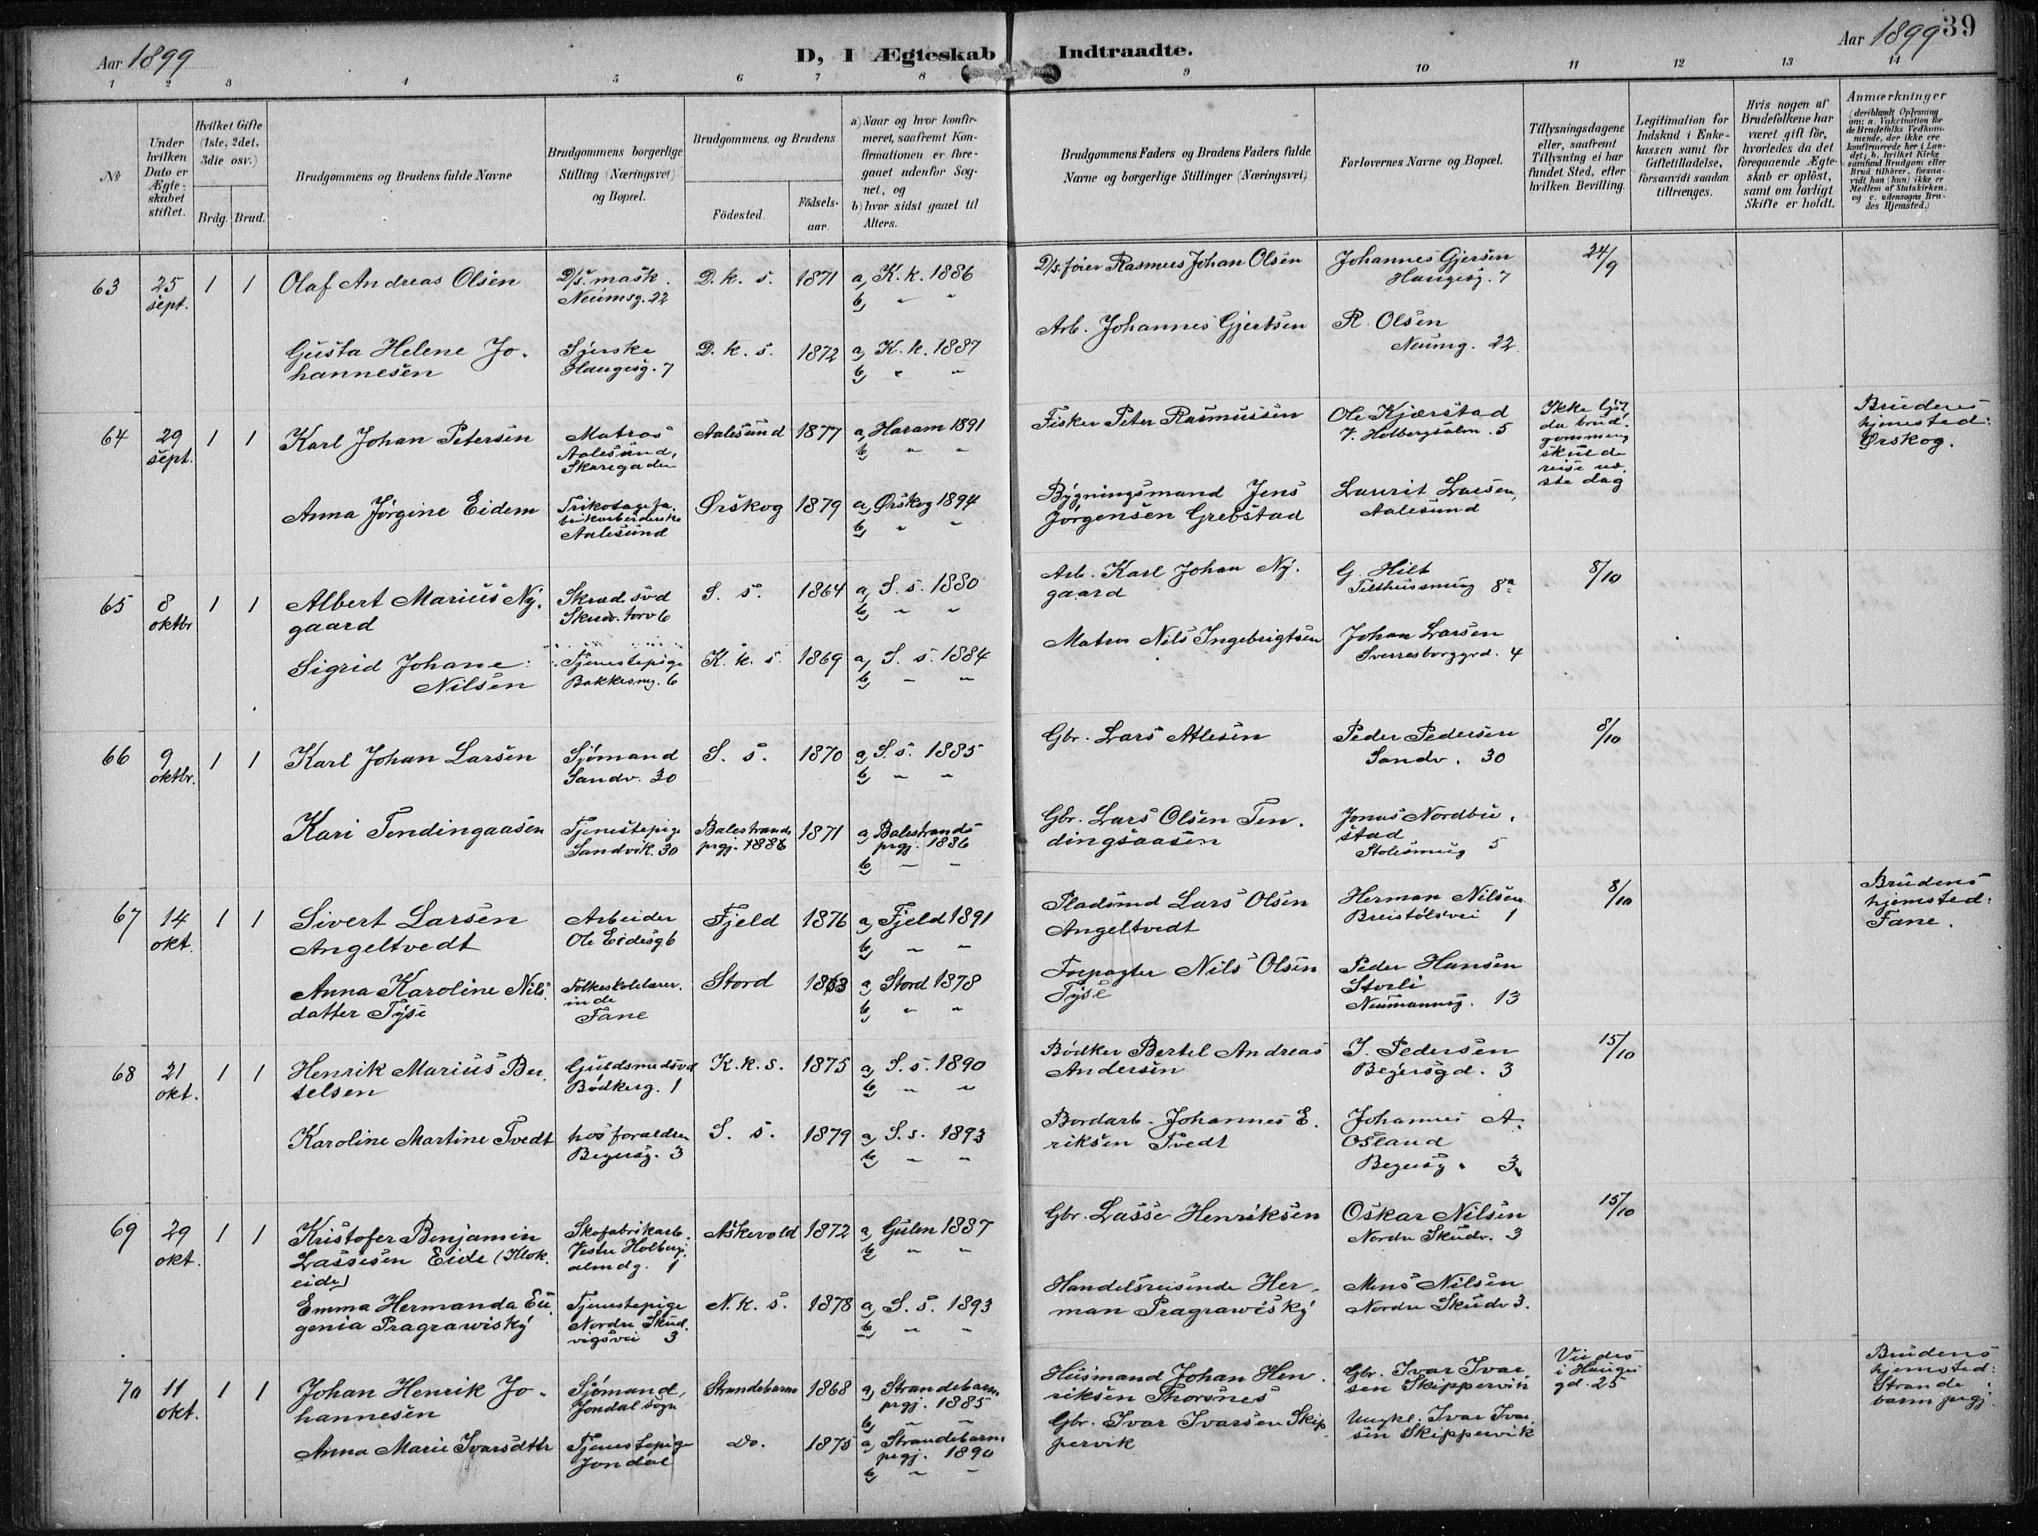 Aar 1899
D, I Ægteskab Indtraadte.
Aar 1899
39
1 2 3 4 5 6 7 8 9 10 11 12 13 14
No.
Under hvilken Dato er Ægteskabet stiftet.
Hvilket Gifte (1ste, 2det, 3die osv.)
Brdg. Brud.
Brudgommens og Brudens fulde Navne
Brudgommens borgerlige Stilling (Næringsvei) og Bopæl.
Brudgommens og Brudens
Fødested.
Fødsels-aar.
a) Naar og hvor konfirmeret, saafremt Konfirmationen er foregaaet udenfor Sognet, og
b) hvor sidst gaaet til Alters.
Brudgommens Faders og Brudens Faders fulde Navne og borgerlige Stillinger (Næringsvei)
Forlovernes Navne og Bopæl.
Tillysningsdagene eller, saafremt Tillysning ei har fundet Sted, efter hvilken Bevilling.
Legitimation for Indskud i Enkekassen samt for Giftetilladelse, forsaavidt saadan tiltrænges.
Hvis nogen af Brudefolkene har været gift før, hvorledes da det foregaaende Ægteskab er opløst, samt om lovligt Skifte er holdt.
Anmærkninger
(deriblandt Oplysning om: a. Vakcination for de Brudefolks Vedkommende, der ikke ere konfirmerede her i Landet; b. hvilket Kirkesamfund Brudgom eller Brud tilhører, forsaavidt han (hun) ikke er Medlem af Statskirken, og c. udensogns Brudes Hjemsted.)
63 25 sept. 1 1 Olaf Andreas Olsen D/s. mask. Neumsg. 22 D. k. s. 1871 a, K. k. 1886 b, " " D/s. føier Rasmus Johan Olsen Johannes Gjersen Haugesg. 7 24/9
Gusta Helene Johannesen Syerske Haugesg. 7 D. k. s. 1872 a, K. k. 1887 b, " " Arb. Johannes Gjertsen R. Olsen Neumg. 22
64 29 sept. 1 1 Karl Johan Petersen Matros Aalesund, Skaregaden Aalesund 1877 a, Haram 1891 b, " " Fisker Peter Rasmussen Ole Kjærstad V. Holbergsalm. 5 Ikke lyst da brudgommen skulde reise næste dag Brudens hjemsted: Ørskog.
Anna Jørgine Eidem Trikotagefabrikarbeiderske Aalesund Ørskog 1879 a, Ørskog 1894 b, " " Bygningsmand Jens Jørgensen Grebstad Laurit Larsen, Aalesund
65 8 oktbr 1 1 Albert Marius Nygaard Skræd. svd Skudv. torv 6 S. s. 1864 a, S. s. 1880 b, " " Arb. Karl Johan Nygaard G. Hilt Telthussmug 8a 8/10
Sigrid Johane Nilsen Tjenestepige Bakkesmg. 6 K. k. s. 1869 a, S. s. 1884 b, " " Matros Nils Ingebrigtsen Johan Larsen Sverresborggrd. 4
66 9 oktbr. 1 1 Karl Johan Larsen Sjømand Sandv. 30 S. s. 1870 a, S. s. 1885 b, " " Gbr. Lars Atlesen Peder Pedersen Sandv. 30 8/10
Kari Tendingaasen Tjenestepige Sandvik. 30 Balestrands prgj. 1886 1871 a, Balestrands prgj. 1886 b, " " Gbr. Lars Olsen Tendingsaasen Jonas Nordbustad Stølesmug 5
67 14 okt. 1 1 Sivert Larsen Angeltvedt Arbeider Ole Eidesg 6 Fjeld 1876 a, Fjeld 1891 b, " " Pladsmd Lars Olsen Angeltvedt Herman Nilsen Breistølsvei 1 8/10 Brudens hjemsted: Fane.
Anna Karoline Nilsdatter Tyse Folkeskolelærerinde Fane Stord 1863 a, Stord 1878 b, " " Forpagter Nils Olsen Tyse Peder Hansen Storli Neumannsg. 13
68 21 okt. 1 1 Henrik Marius Bertelsen Guldsmedsvd Bødkerg. 1 K. k. s. 1875 a, S. s. 1890 b, " " Bødker Bertel Andreas Andersen I. Pedersen Beyersgd. 3 15/10
Karoline Martine Tvedt hos foraldren Beyersg. 3 S. s. 1879 a, S. s. 1893 b, " " Bordarb. Johannes Eriksen Tvedt Johannes A. Osland Beyersg. 3
69 29 okt. 1 1 Kristofer Benjamin Lassesen Eide (Klokeide) Skofabrikarb. Vestre Holbergalmdg. 1 Askevold 1872 a, Gulen 1887 b, " " Gbr. Lasse Henriksen Oskar Nilsen Nordre Skudv. 3 15/10
Emma Hermanda Eugenia Pragrawisky Tjenestepige Nordre Skudvigsvei 3 N. k. s. 1878 a, S. s. 1893 b, " " Handelsreisende Herman Pragrawisky Mons Nilsen Nordre Skudv 3.
70 11 okt. 1 1 Johan Henrik Johannesen Sjømand, Jondal sogn Strandebarm 1868 a, Strandebarm prgj. 1885 b, " " Husmand Johan Henriksen Thorsnes Gbr. Ivar Ivarsen Skippervik Viedes i Haugesgd. 25 Brudens hjemsted: Strandebarm prgj.
Anna Marie Ivarsdttr Tjenestepige Jondal Do. 1875 a, Strandebarm. prgj. 1890 b, " " Gbr. Ivar Ivarsen Skippervik Ungkl. Ivar Ivarsen Skippervik